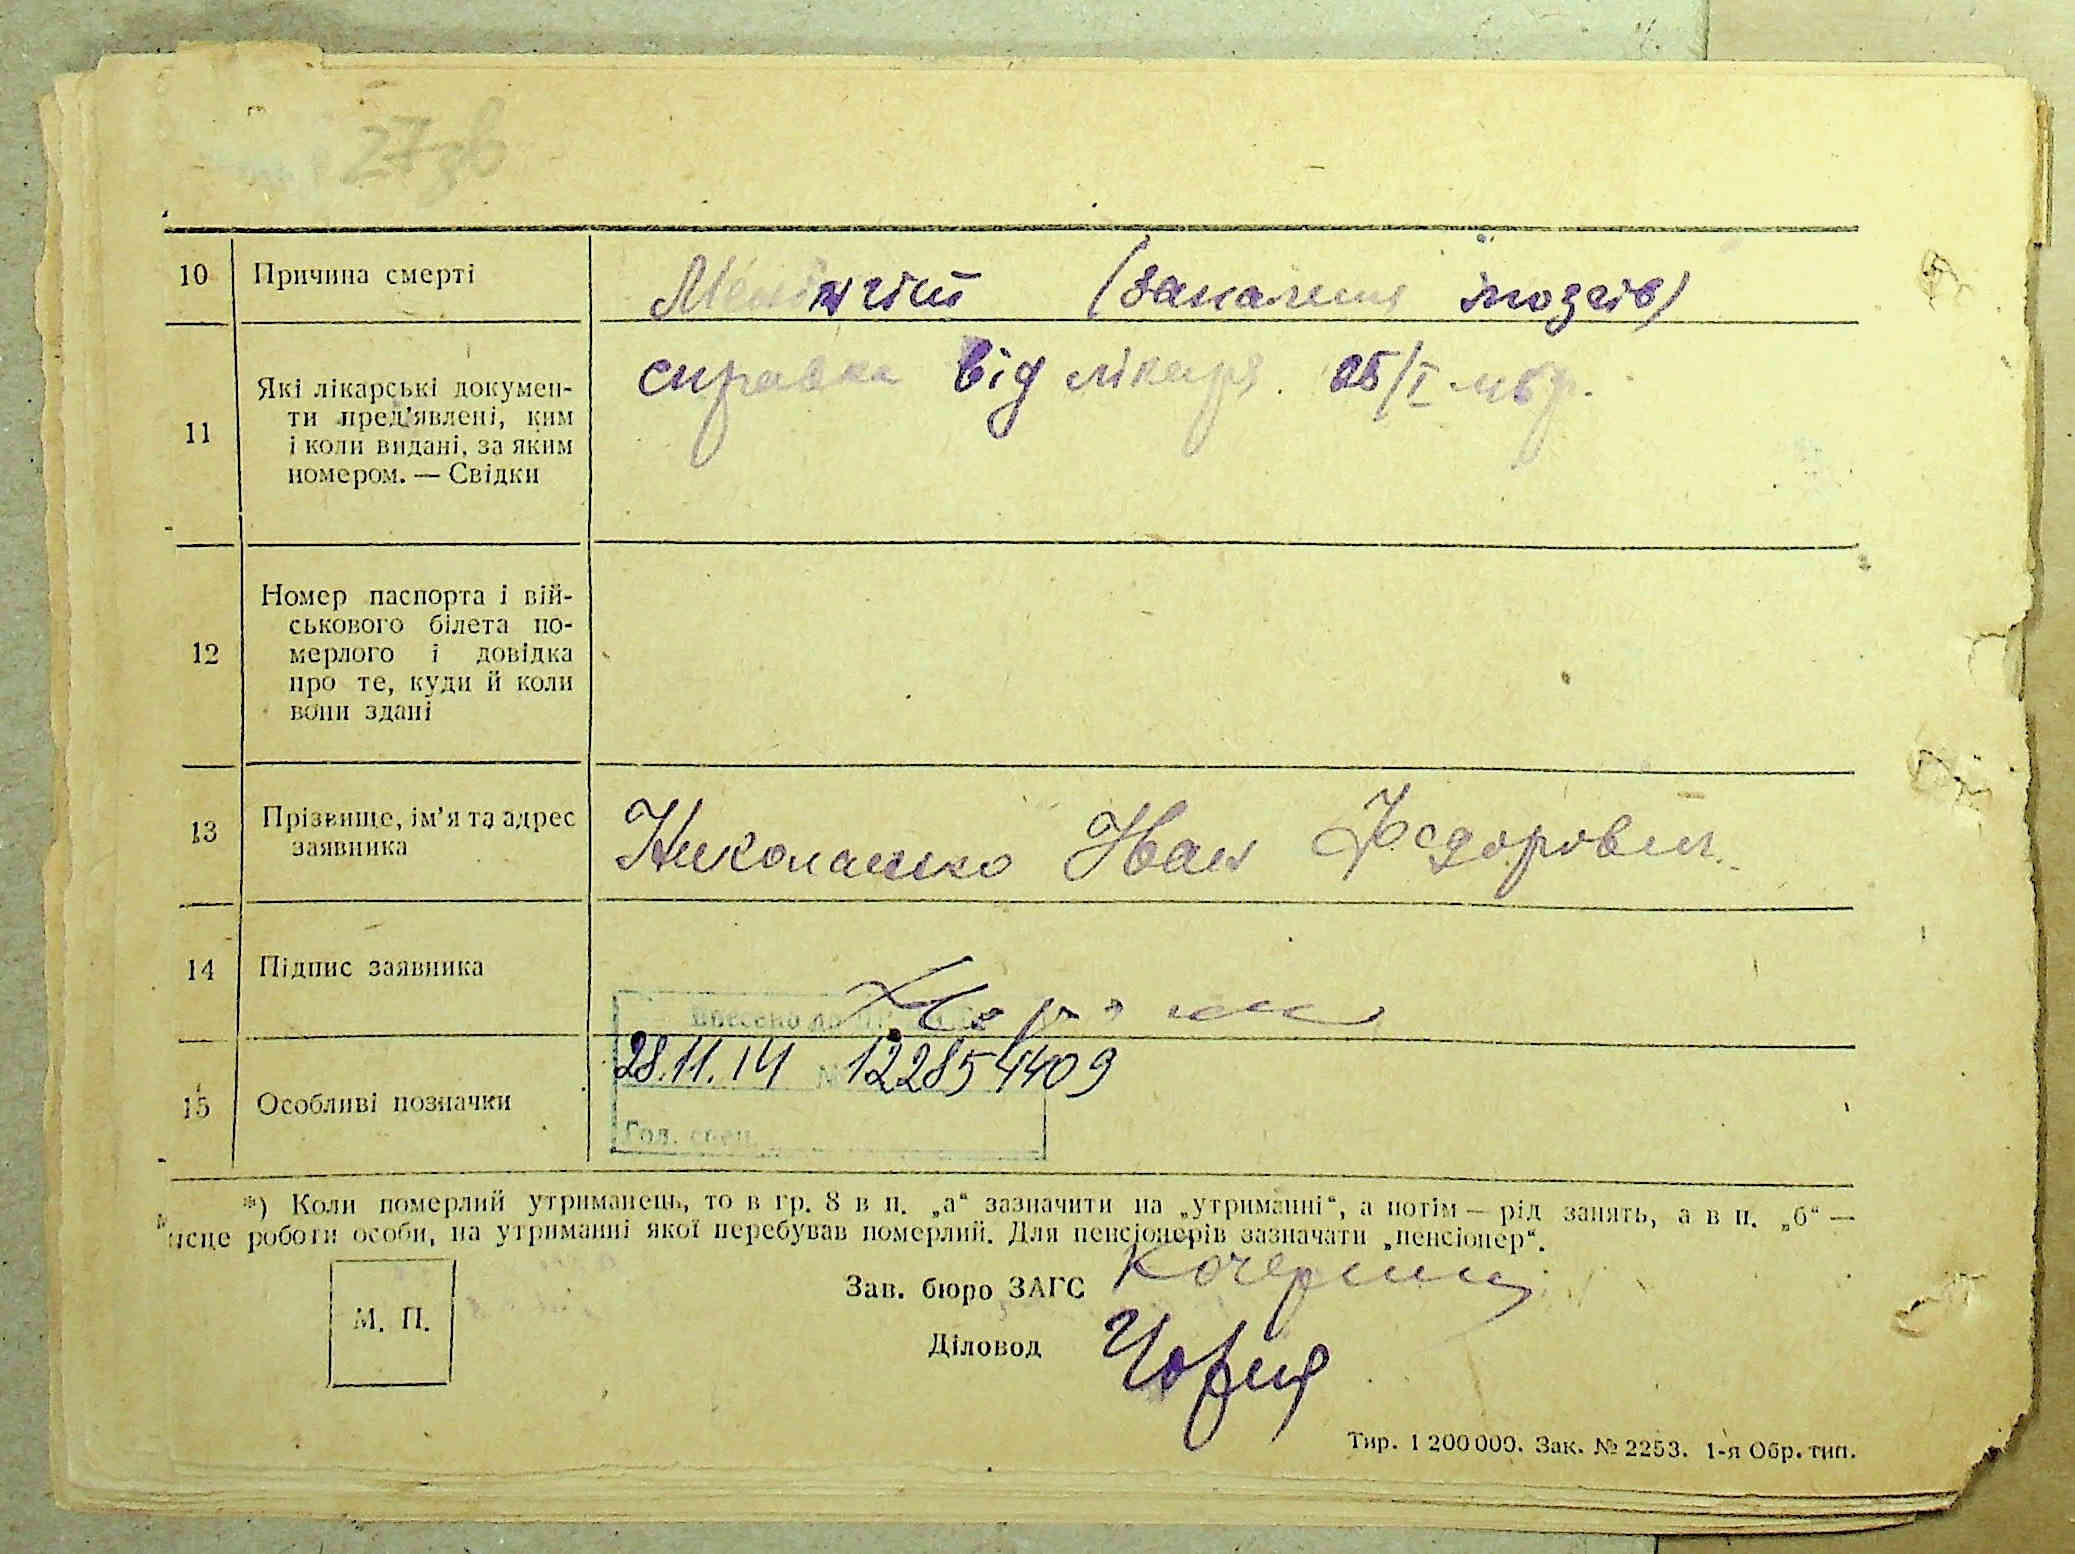 27зв
10 Причина смерті Менінгіт (запалення мозгів)
11 Які лікарські докумен-
ти пред’явлені, ким
і коли видані, за яким
номером. — Свідки
справка від лікаря. 25/I
12 Номер паспорта і вій-
ськового білета по-
мерлого і довідка
про те, куди й коли
вони здані
13 Прізвище, ім’я та адрес
заявника
Николаенко Иван Федорович.
14 Підпис заявника
Внесено до
28.11.14 № 122854409
15 Особливі позначки
Гол. спец.
*) Коли померлий утриманець, то в гр. 8 в п. „а“ зазначити на „утриманні“, а потім — рід занять, а в п. „б“ —
місце роботи особи, на утриманні якої перебував померлий. Для пенсіонерів зазначати „пенсіонер“.
М. П.
Зав. бюро ЗАГС
Діловод
Тир. 1 200 000. Зак. № 2253. 1-я Обр. тип.